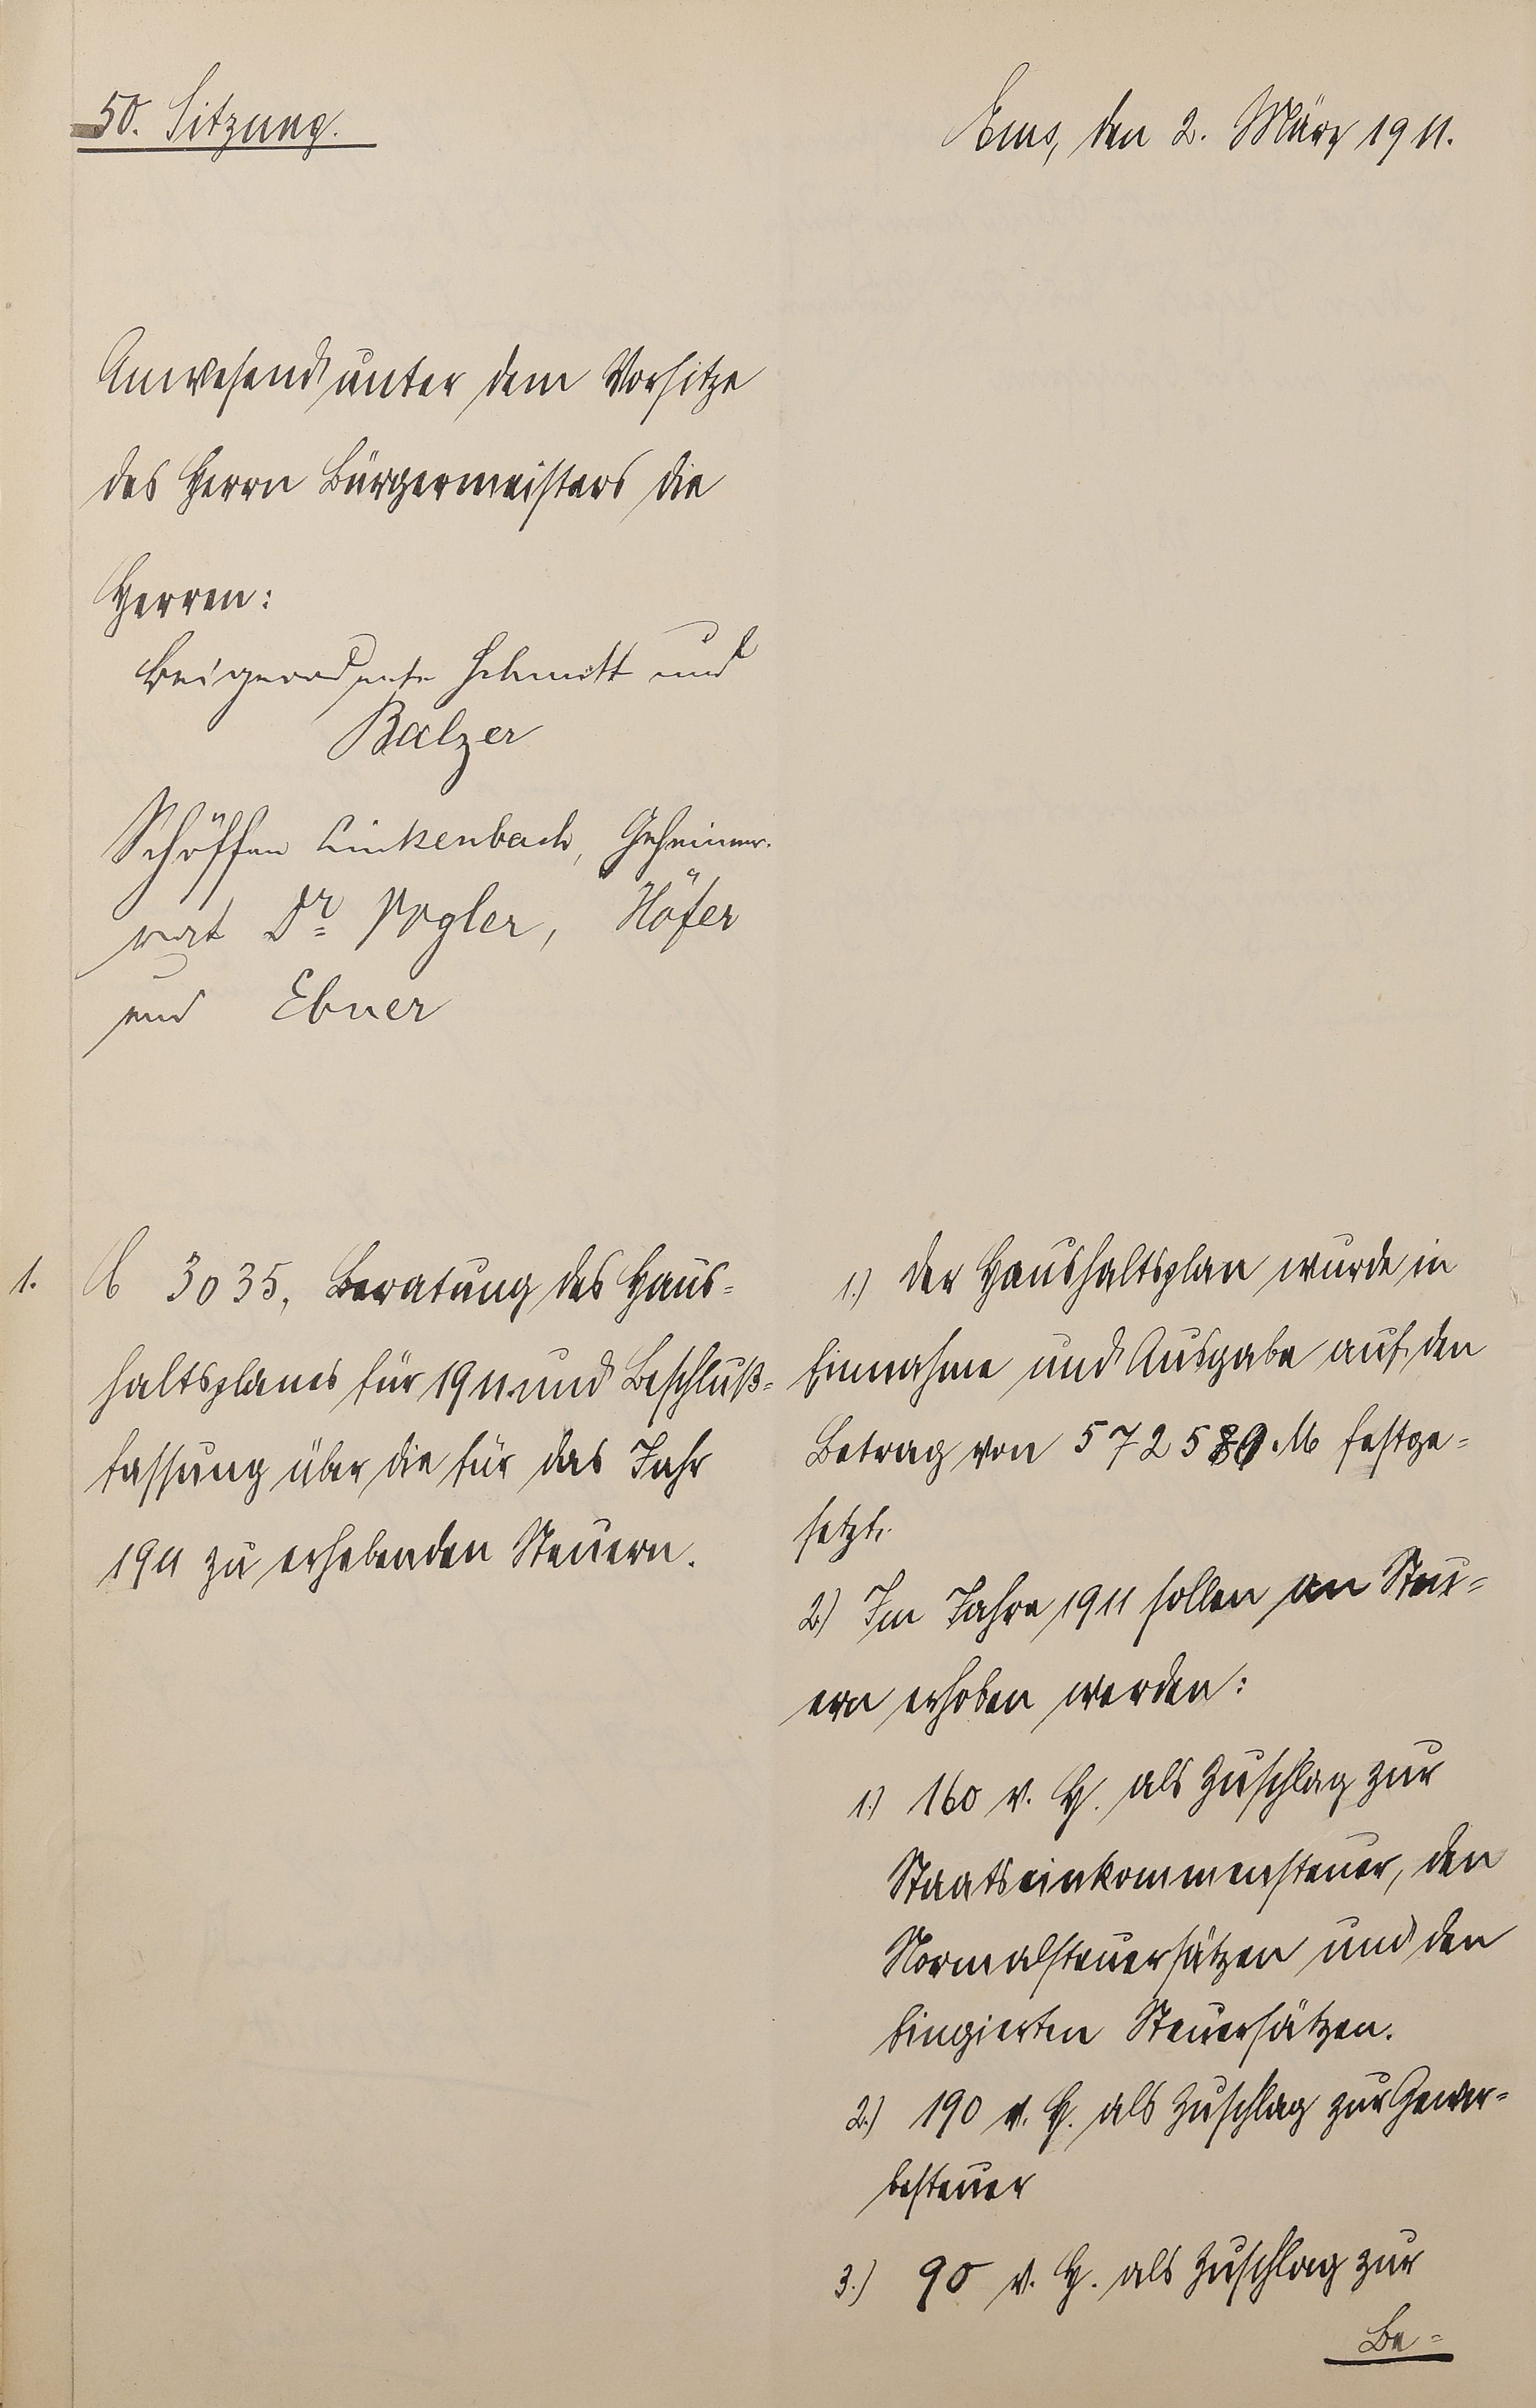 50. Sitzung.
Ems, den 2. März 1911.
Anwesend unter dem Vorsitze
des Herrn Bürgermeisters die
Herren:
Beigeordnete Schmitt und
Balzer
Schöffen Linkenbach, Geheimer
rat Dr. Vogler, Höfer
und Ebner
1. A 3035, Beratung des Haus=
haltsplanes für 1911 und Beschluß=
fassung über die für das Jahr
1911 zu erhebenden Steuern.
1.) Der Haushaltsplan wurde in
Einnahme und Ausgabe auf den
Betrag von 572589 M festge=
setzt.
2.) Im Jahre 1911 sollen an Steu=
ern erhoben werden:
1.) 160 v. H. als Zuschlag zur
Staatseinkommensteuer, den
Normalsteuersätzen und den
fingierten Steuersätzen.
2.) 190 v. H. als Zuschlag zur Gewer=
besteuer
3.) 90 v. H. als Zuschlag zur
Be=